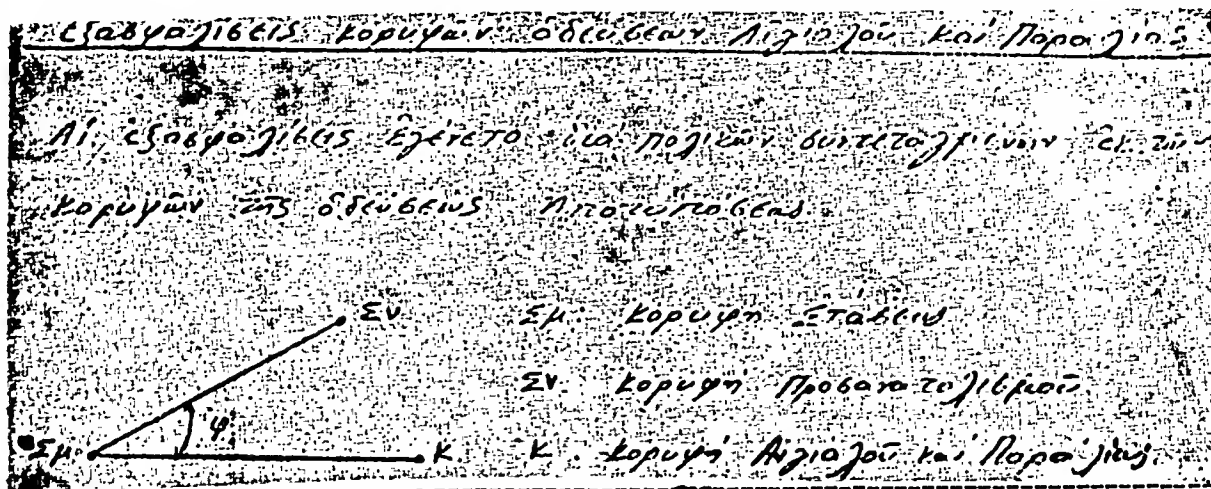 Ἐξασφαλίσεις κορυφῶν ὁδεύσεων Αἰγιαλοῦ καί Παραλίας
Αἱ ἐξασφαλίσεις ἐγένετο διά πολικῶν συντεταγμένων ἐκ τῶν
κορυφῶν τῆς ὁδεύσεως Ἀποτυπώσεως
Σν Σμ. κορυφή Στάσεως
Σν. κορυφή Προσανατολισμοῦ
φ
Σμ. Κ Κ. κορυφή Αἰγιαλοῦ καί Παραλίας.